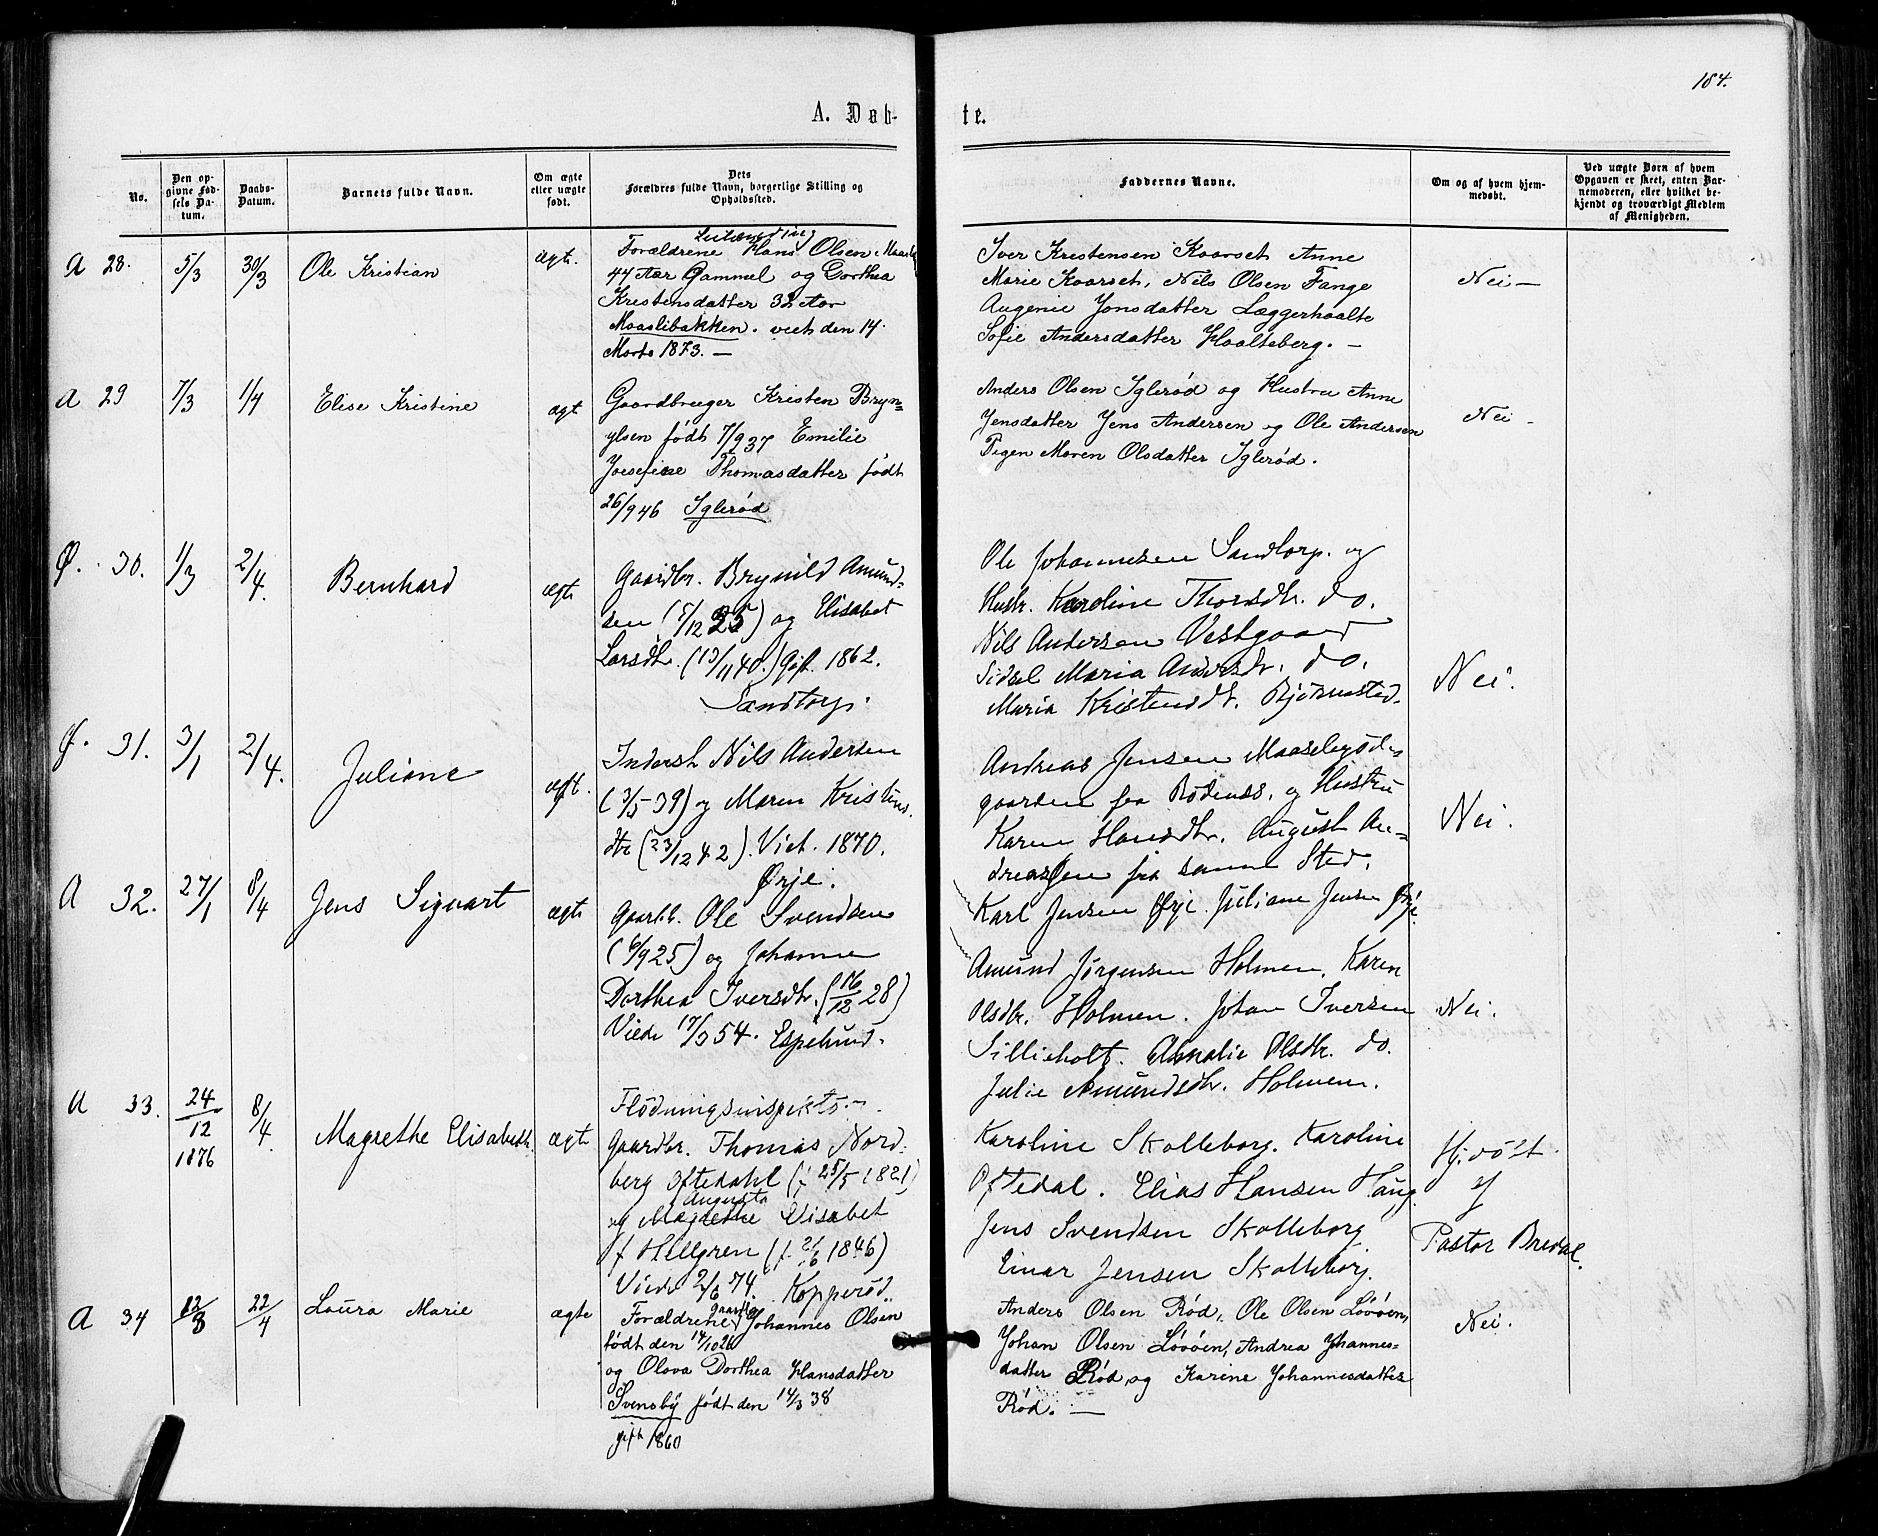 184.
A. Døb-
te.
No.
Den op-
givne Fød-
sels Da-
tum.
Daabs-
Datum.
Barnets fulde Navn.
Om ægte
eller uægte
født.
Dets
Forældres fulde Navn, borgerlige Stilling og
Opholdssted.
Faddernes Navne.
Om og af hvem hjem-
medøbt.
Ved uægte Børn af hvem
Opgaven er skeet, enten Bar-
nemoderen, eller hvilket be-
kjendt og troværdigt Medlem
af Menigheden.
A 28. 5/3 30/3 Ole Kristian ægt.
Forældrene Hans Olsen
44 Aar Gammel og Dorthea
Kristensdatter 32 Aar
Maaslibakken. viet den 14.
Marts 1873. —
Iver Kristensen Kaarset Anne
Marie Kaarset, Nils Olsen Fange
Augenie Jonsdatter Læggerhaalte
Sofie Andersdatter Haalteberg. —
Nei —
A 29 7/3 1/4 Elise Kristine ægt
Gaardbruger Kristen Bryn-
ylsen født 7/9 37 Emilie
Josefine Thomasdatter født
26/9 46 Iglerød
Anders Olsen Iglerød og Hustru Anne
Jensdatter Jens Andersen og Ole Andersen
Pigen Maren Olsdatter Iglerød.
Nei -
Ø. 30. 1/3 2/4. Bernhard ægt.
Gaardbr. Brynild Amund-
sen (5/12 35) og Elisabet
Larsdt. (13/11 40.) Gift. 1862.
Sandtorp.
Ole Johannesen Sandtorp. og
Hustr. Karoline Thorsdtr. do.
Nils Andersen Vestgaard
Sidsel Maria Andersdtr. do.
Maria Kristensdtr. Bjørnstad.
Nei.
Ø. 31. 3/1 2/4. Juliane ægt.
Inderst Nils Andersen
(3/5-39) og Maren Kristens.
dtr (23/12 42). Viet. 1870.
Ørje.
Andreas Jensen
gaarden fra Rødenæs, og Hustru
Karen Hansdtr. August An-
dreassen fra samme Sted.
Karl Jensen Ørje. Juliane Jensen Ørje.
Nei.
A 32. 27/1 8/4 Jens Sigvart ægte
Gaardb. Ole Svendsen
(6/9 25) og Johanne
Dorthea Iversdtr. (16/12 28)
Viede 17/3 54. Espelund.
Amund Jørgensen Holmen. Karen
Olsdtr. Holmen. Johan Iversen
Sillieholt. Amalie Olsdtr. do.
Julie Amundsdtr. Holmen.
Nei.
A 33. 24/12 1876 8/4. Magrethe Elisabeth. ægte
Flødningsinspektr. -
Gaardbr. Thomas Nord-
berg Oftedahl (f 25/5 1821)
Augusta
og Magrethe Elisabet
f Hellgren (f. 21/6 1846)
Viede 2/6 74. Kopperød.
Karoline Skolleborg. Karoline
Oftedal. Elias Hansen Haug.
Jens Svendsen Skolleborg
Einar Jensen Skolleborg.
Hj. døbt.
af
Pastor Bredal.
A 34 12/3 22/4 Laura Marie ægte
Forældrene Johannes Olsen
født den 14/10 26
og Olava Dorthea Hansdatter
Svensby født den 14/3 38
gift 1860
Anders Olsen Rød, Ole Olsen Løvøen,
Johan Olsen Løvøen, Andrea Johannes-
datter Rød, og Karine Johannesdatter
Rød. —
Nei.